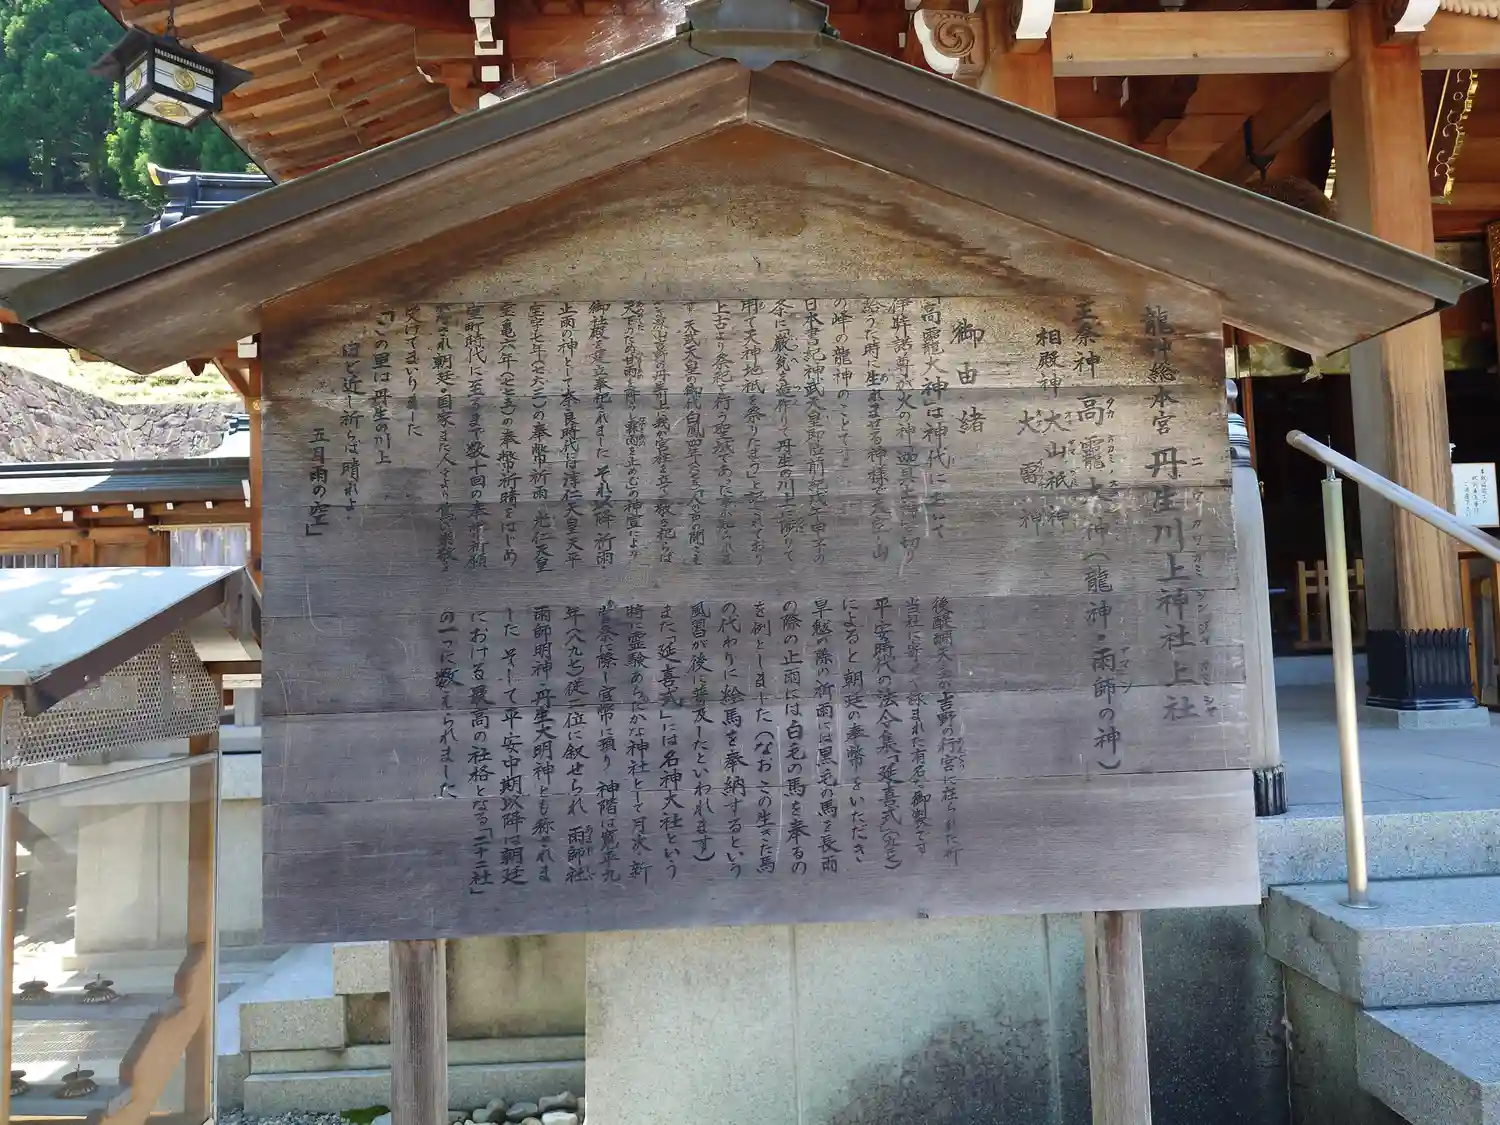 龍神総本宮 丹生川上神社上社
ニウカワカミジンジャカミシャ
主祭神 高龗大神(龍神・雨師の神)
相殿神 大山祇神
大雷神
御由緒
「高龗大神は神代に於いて
伊弉諾尊が火の神迦具土神を切り
給うた時に生れませる神様で大宮山
の峰の龍神のことです
日本書紀神武天皇即位前紀戊午年の
条に厳瓮を造作りて丹生の川上に陟りて
用て天神地祇を祭りたまう」と記されており
上古より祭祀を行う聖域であった事が知られま
す 天武天皇の御代白鳳四年(六七五)「人声の聞こえざ
る深山吉野の丹生川上に我が宮柱を立て敬き祀らば
天下のために甘雨を降らし霖雨を止むの神宣により
御社殿を建立奉祀されました それ以降祈雨・
止雨の神として奈良時代は淳仁天皇天平
宝字七年(七六三)の奉幣祈雨 光仁天皇
宝亀六年(七七五)の奉幣祈晴をはじめ
室町時代に至るまで数十回の奉幣祈願
がなされ朝廷と国家また人々より篤い崇敬を
受けてまいりました
「この里は丹生の川上
ほど近し祈らば晴れよ
五月雨の空」
後醍醐天皇が吉野の行宮に在らした折
当社に寄せて詠まれた有名な御製です
平安時代の法令集「延喜式」(九二七)
によると朝廷の奉幣をいただき
旱魃の際の祈雨には黒毛の馬を長雨
の際の止雨には白毛の馬を奉るの
を例としました(なおこの生きた馬
の代わりに絵馬を奉納するという
風習が後に普及したといわれます)
また「延喜式」には名神大社という
時に霊験あらたかな神社として月次 新
嘗祭に際し官幣に預り 神階は寛平九
年(八九七)従二位に叙せられ 雨師社
雨師明神 丹生大明神とも称されま
した そして平安中期以降は朝廷
における最高の社格となる「二十二社」
の一つに数えられました